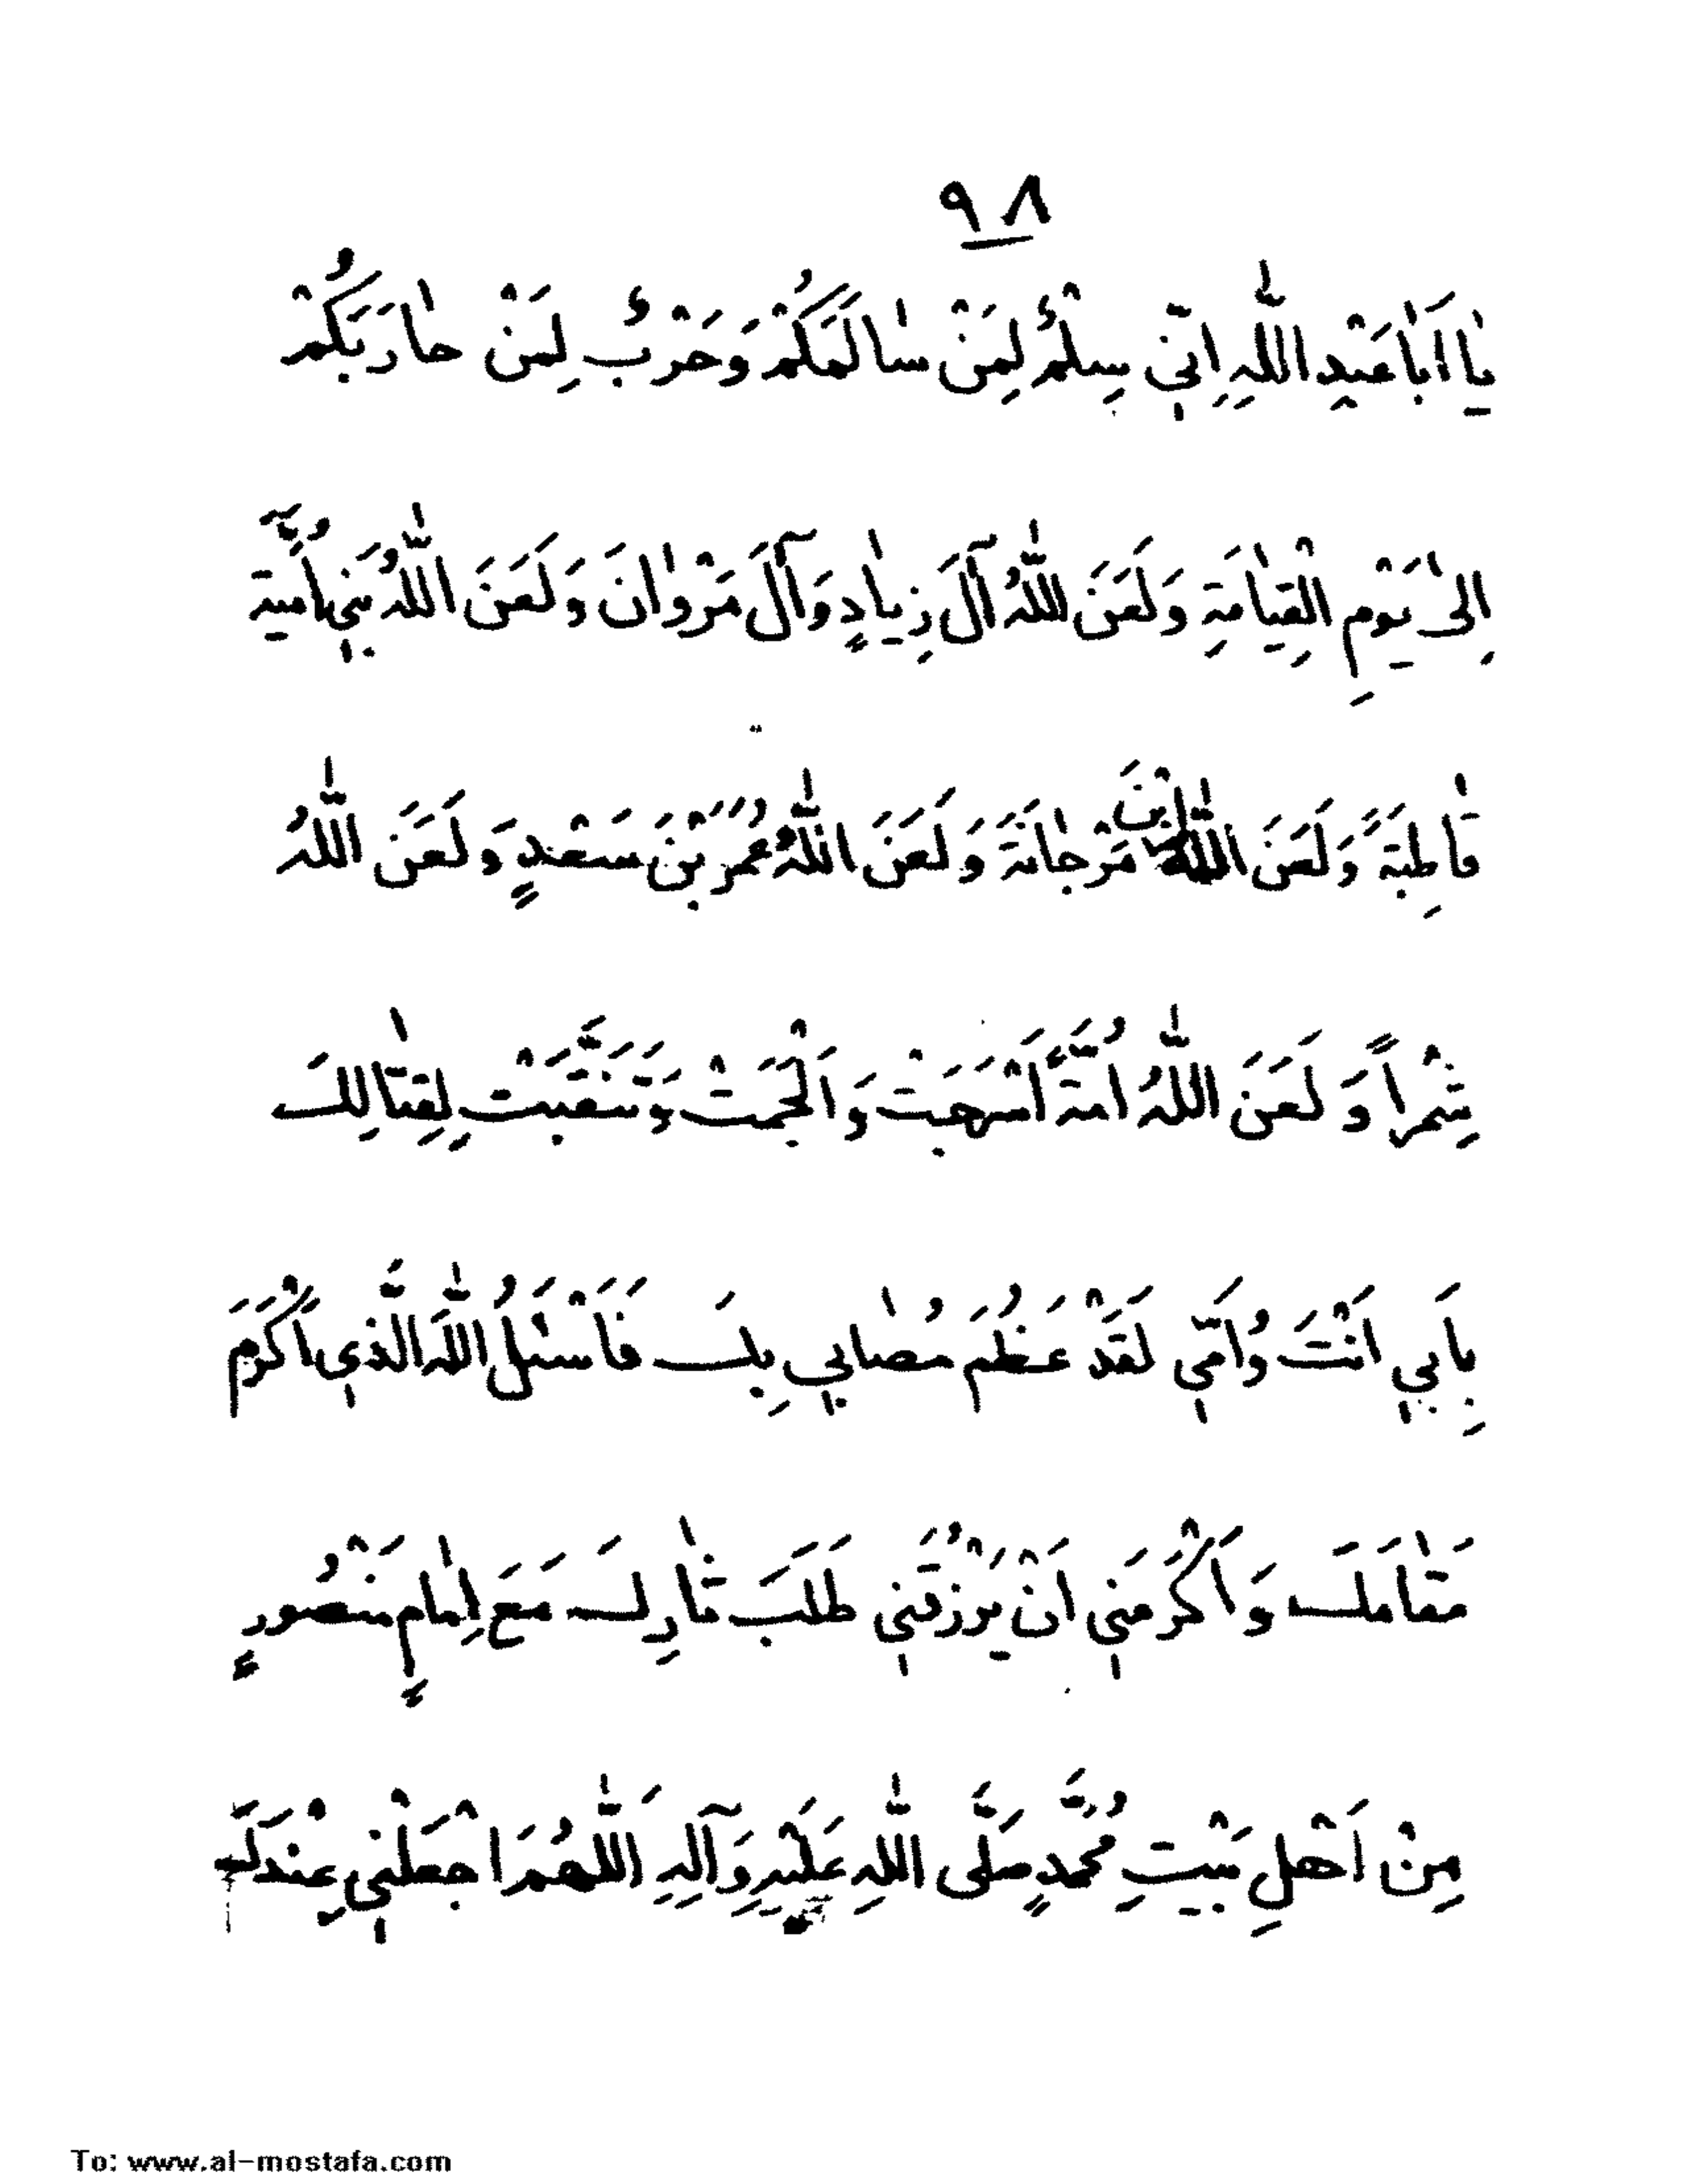 ٩٨
يٰا اَبٰا عَبْدِ اللّٰهِ اِنّي سِلْمٌ لِمَنْ سٰالَمَكُمْ وَحَرْبٌ لِمَنْ حٰارَبَكُمْ
اِلىٰ يَوْمِ الْقِيٰامَةِ وَلَعَنَ اللّٰهُ آلَ زِيٰادٍ وَآلَ مَرْوٰانَ وَلَعَنَ اللّٰهُ بَنِي اُمَيَّةَ
قٰاطِبَةً وَلَعَنَ اللّٰهُ ابْنَ مَرْجٰانَةَ وَلَعَنَ اللّٰهُ عُمَرَ بْنَ سَعْدٍ وَلَعَنَ اللّٰهُ
شِمْراً وَلَعَنَ اللّٰهُ اُمَّةً اَسْرَجَتْ وَاَلْجَمَتْ وَتَنَقَّبَتْ لِقِتٰالِكَ
بِاَبي اَنْتَ وَاُمّي لَقَدْ عَظُمَ مُصٰابي بِكَ فَاَسْئَلُ اللّٰهَ الَّذي اَكْرَمَ
مَقٰامَكَ وَاَكْرَمَني اَنْ يَرْزُقَني طَلَبَ ثٰارِكَ مَعَ اِمٰامٍ مَنْصُورٍ
مِنْ اَهْلِ بَيْتِ مُحَمَّدٍ صَلَّى اللّٰهِ عَلَيْهِ وَآلِهِ اَللّٰهُمَ اجْعَلْني عِنْدَكَ
To: www.al-mostafa.com